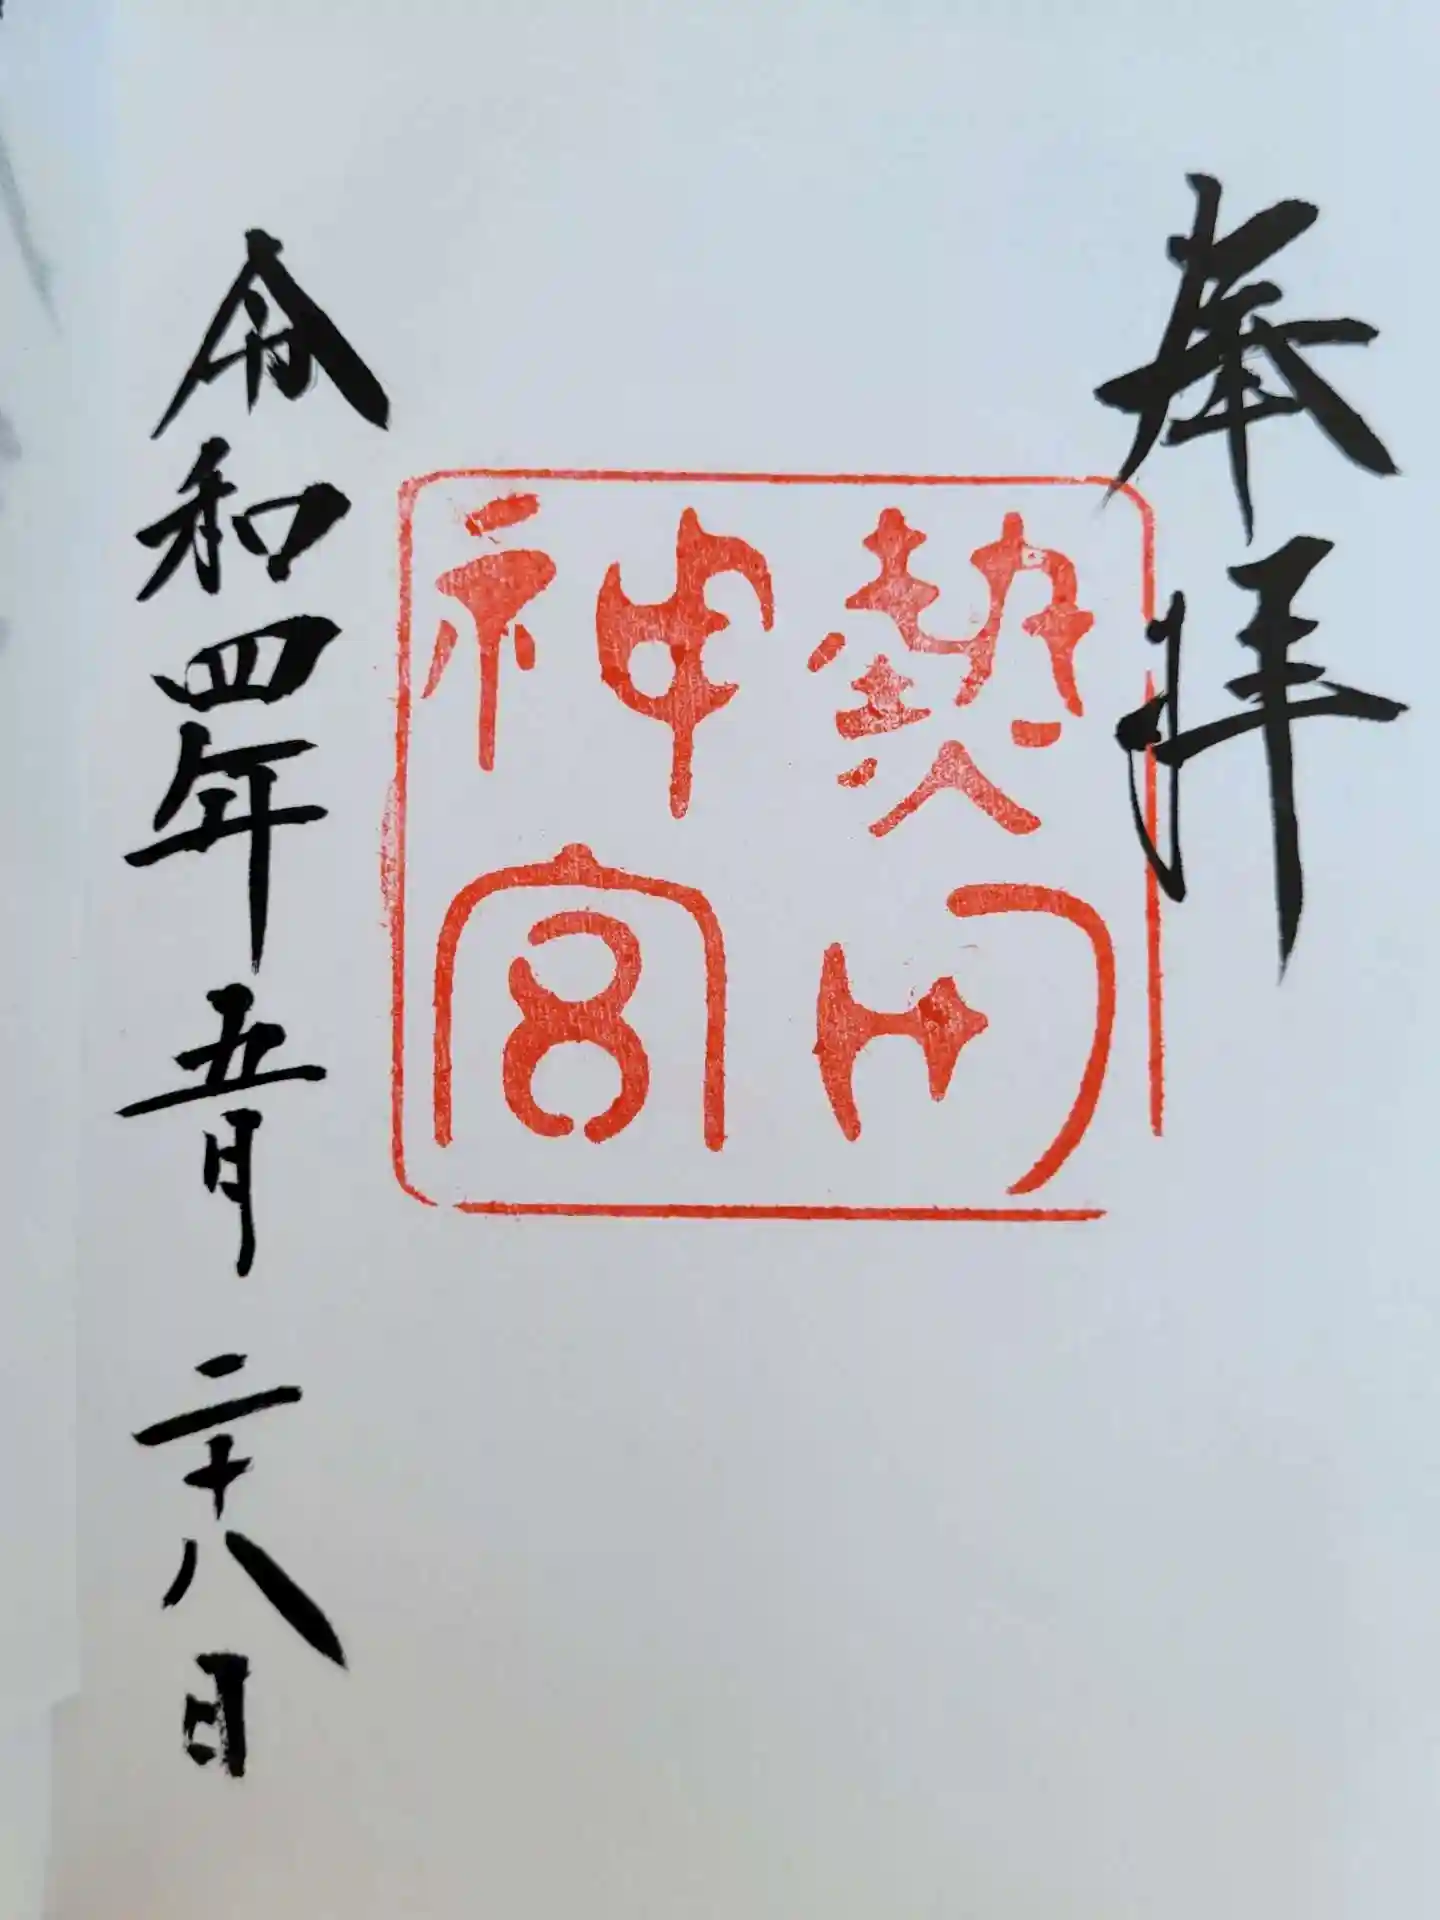 奉拝
熱田
神宮
令和四年五月二十八日